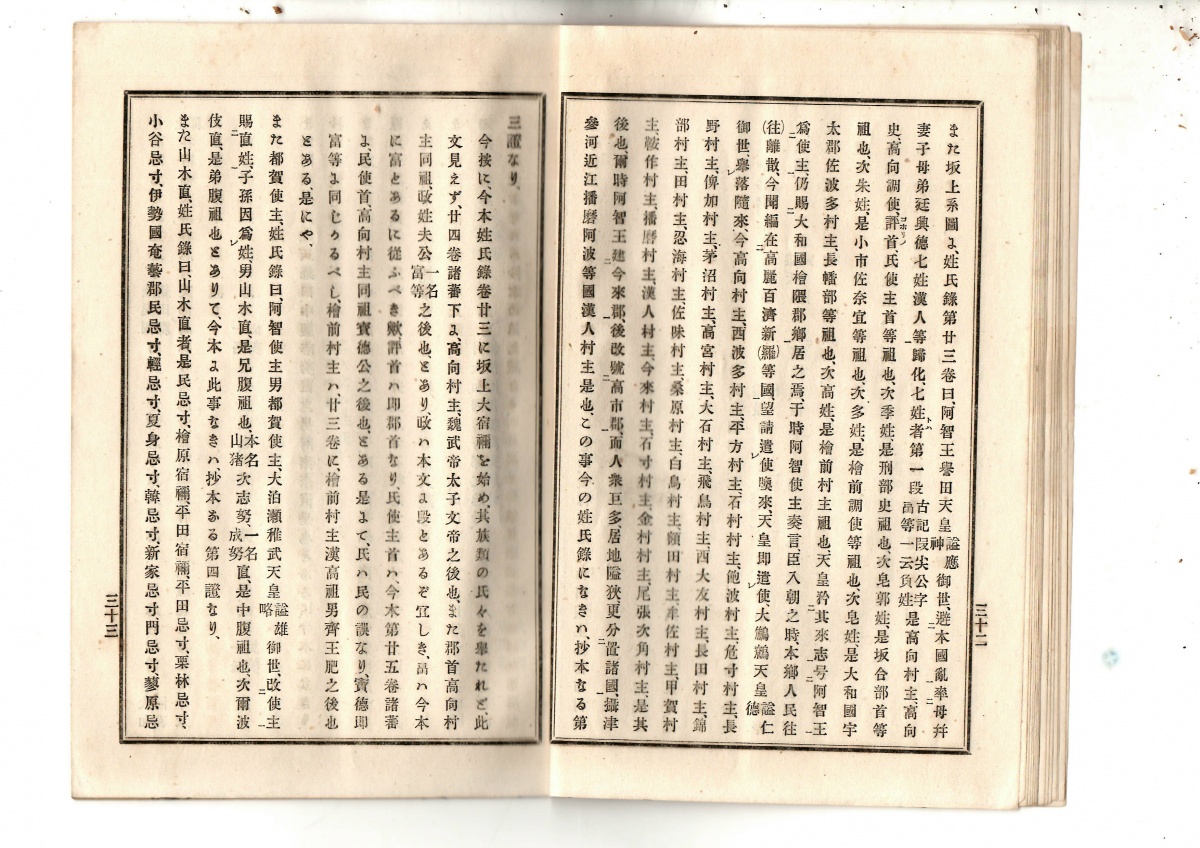 また坂上系圖よ姓氏錄第廿三卷曰、阿智王譽田天皇諡應神御世、避本國亂率母幷
妻子母弟廷興德七姓漢人等歸化、七姓者第一段古記段光公字畐等一云負姓是高向村主、高向
史、高向調使、評首、民使主首等祖也、次李姓、是刑部史祖也、次皂郭姓、是坂合部首等
祖也、次朱姓、是小市佐奈宜等祖也、次多姓、是檜前調使等祖也、次皂姓、是大和國宇
太郡佐波多村主、長幡部等祖也、次高姓、是檜前村主祖也、天皇矜其來志号阿智王
爲使主、仍賜大和國檜隈郡鄉居之焉、于時阿智使主奏言臣入朝之時本鄉人民往
(往)離散、今聞編在高麗百濟新(羅)等國望請遣使喚來、天皇卽遣使大鷦鷯天皇諡仁德
御世、擧落隨來、今高向村主、西波多村主、平方村主、石村村主、飽波村主、危寸村主、長
野村主、俾加村主、茅沼村主、高宮村主、大石村主、飛鳥村主、西大友村主、長田村主、錦
部村主、田村主、忍海村主、佐味村主、桑原村主、白鳥村主、額田村主、牟佐村主、甲賀村
主、鞍作村主、播磨村主、漢人村主、今來村主、石寸村主、金村村主、尾張次角村主、是其
後也、爾時阿智王建今來郡、後改號高市郡、而人衆巨多、居地隘狹、更分置諸國、攝津
參河近江播磨阿波等國漢人村主是也、この事今の姓氏錄になきハ、抄本なる第
三十二
三證なり、
今按に、今本姓氏錄卷廿三に坂上大宿禰を始め、其族類の氏々を擧たれど此
文見えず、廿四卷諸蕃下よ、高向村主、魏武帝太子文帝之後也、また郡首高向村
主同祖、段姓夫公一名富等之後也、とあり、政ハ本文よ段とあるぞ宜しき、畐ハ今本
に富とあるに從ふべき歟、評首ハ卽郡首なり、民使主首ハ、今本第廿五卷諸蕃
よ、民使首高向村主同祖寶德公之後也、とある是よて、氏ハ民の誤なり、寶德卽
富等よ同じかるべし、檜前村主ハ、廿三卷に、檜前村主漢高祖男齊王肥之後也
とある、是にや、
また都賀使主、姓氏錄曰、阿智使主男都賀使主、大泊瀬稚武天皇諡雄略御世、改使主
賜直姓、子孫因爲姓、男山木直、是兄腹祖也、本名山猪次志努、一名成努直、是中腹祖也、次爾波
伎直、是弟腹祖也とありて、今本よ此事なきハ、抄本ある第四證なり、
また山木直、姓氏錄曰、山木直者、是民忌寸、檜原宿禰、平田宿禰、平田忌寸、栗林忌寸、
小谷忌寸、伊勢國奄藝郡民忌寸、輕忌寸、夏身忌寸、韓忌寸、新家忌寸、門忌寸、蓼原忌
三十三